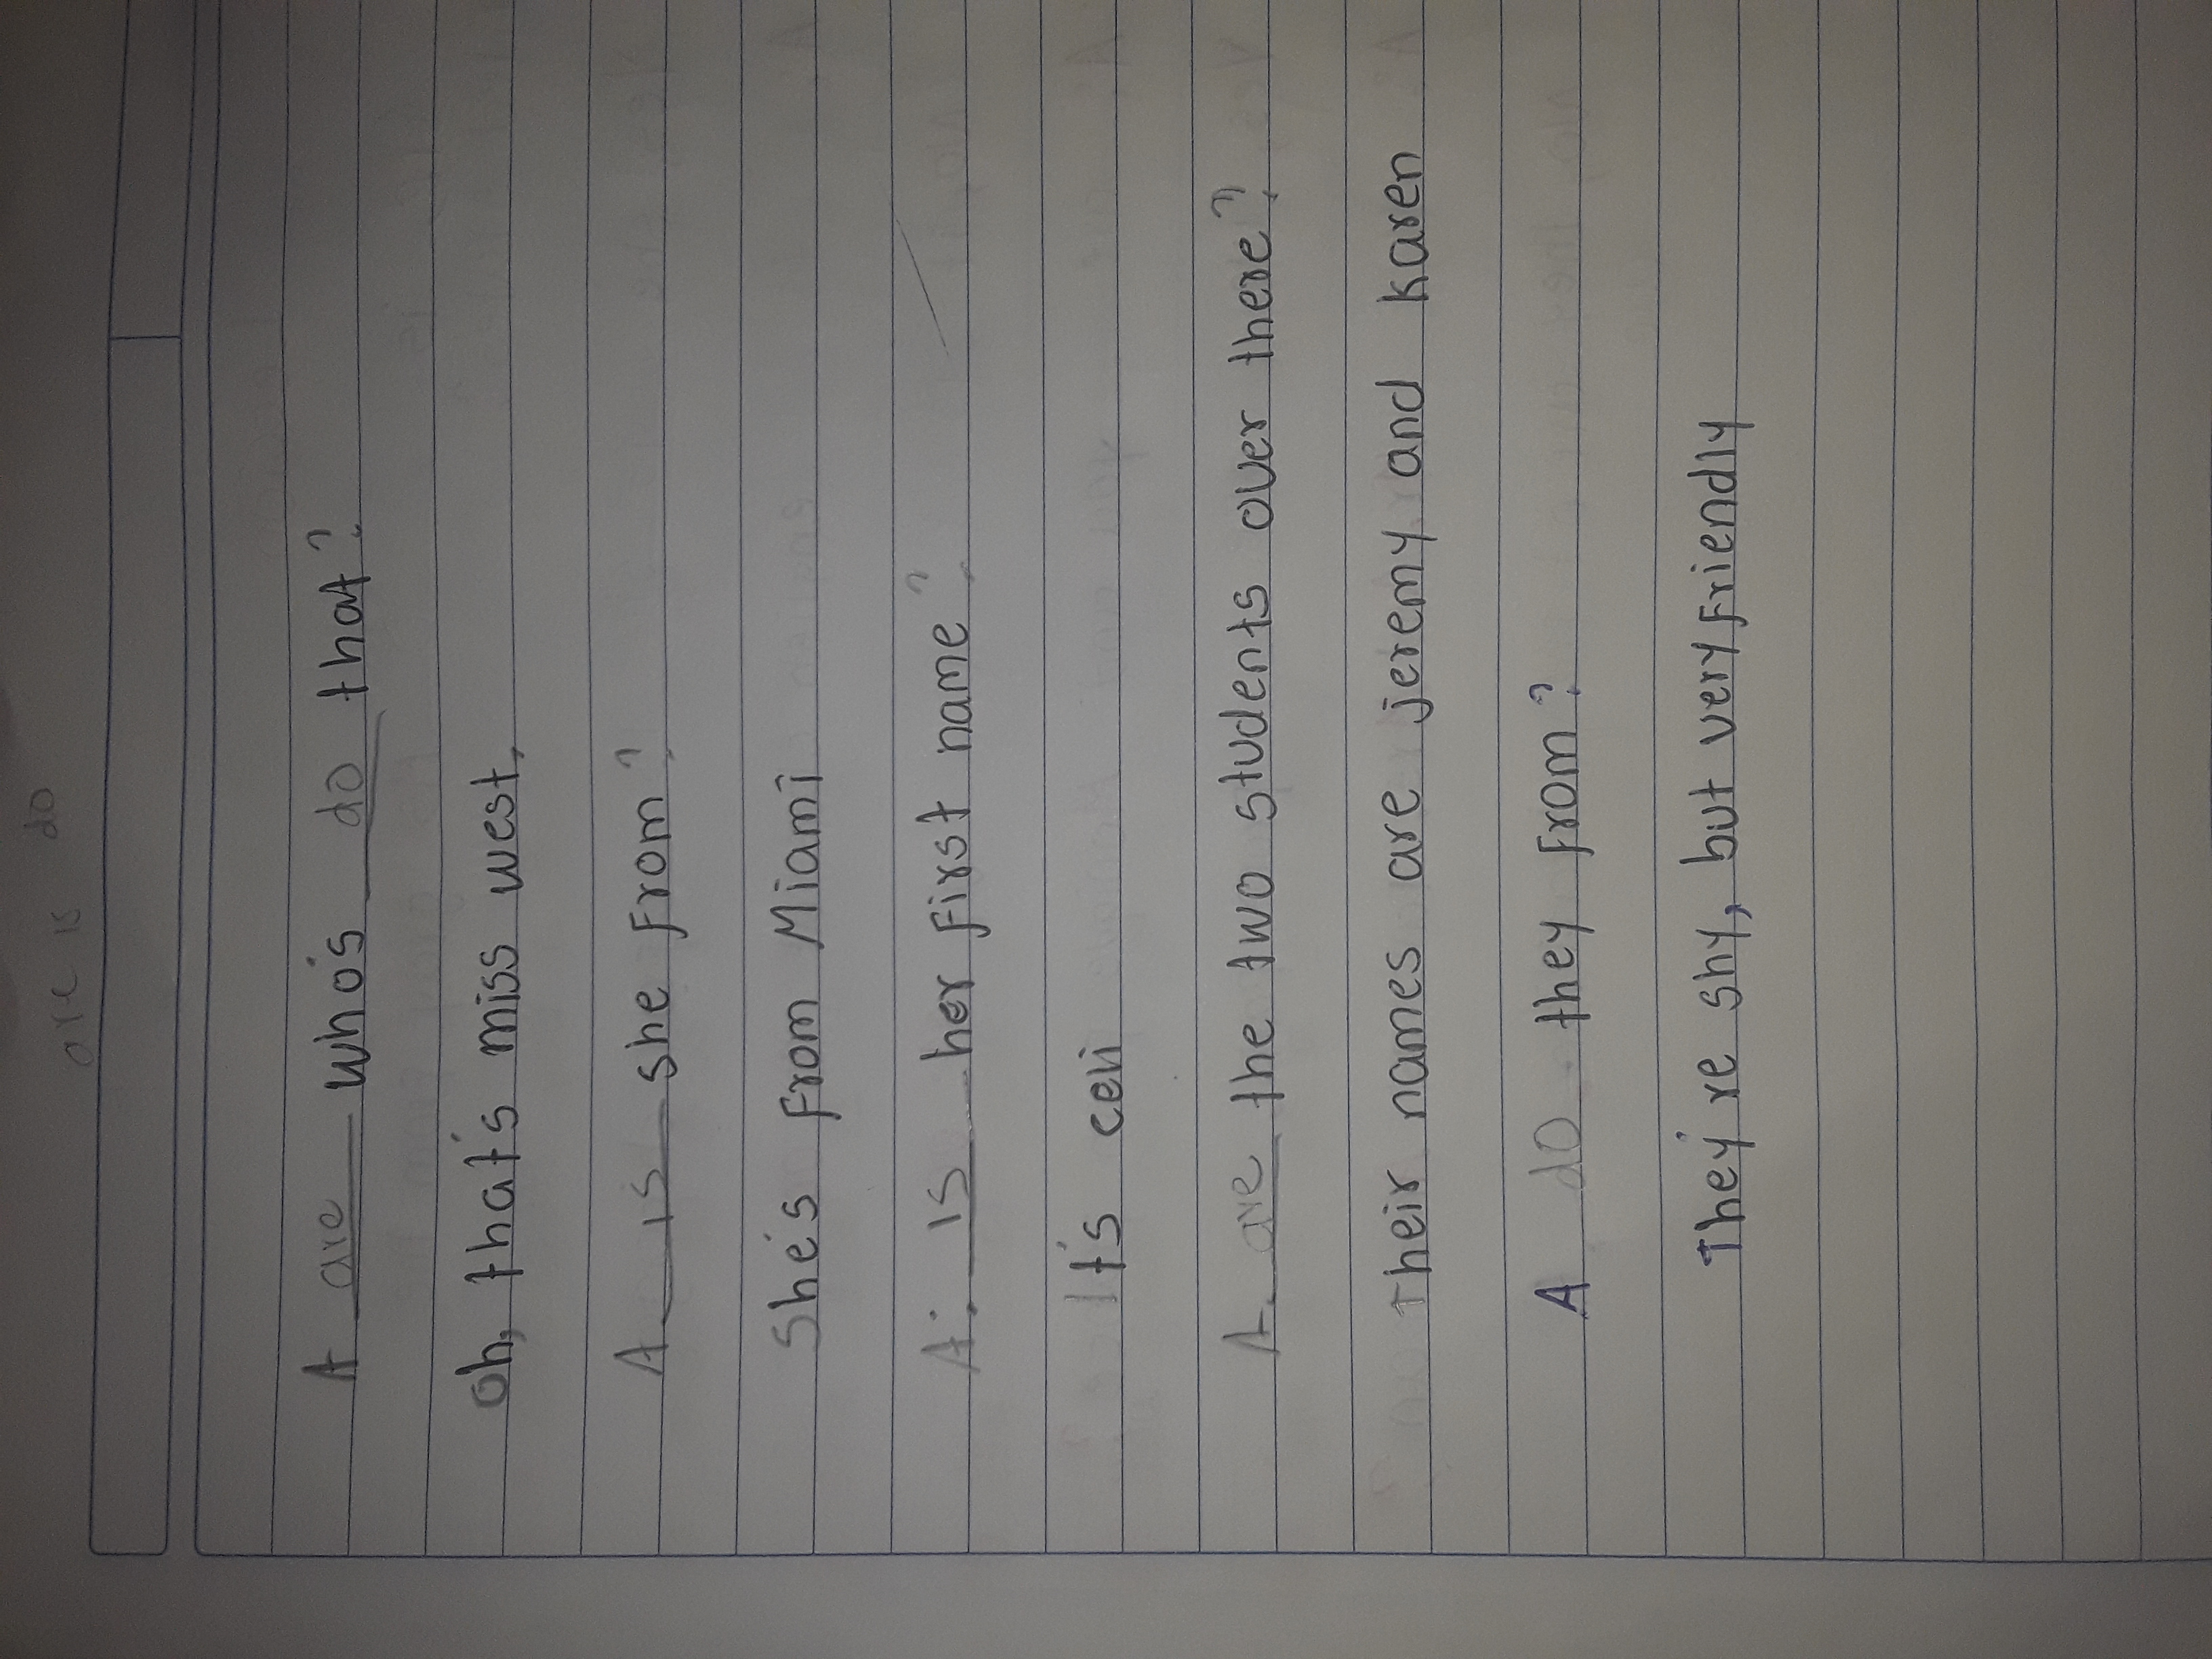 are is do
A are who's do that?
Oh, that's miss west.
A is she from?
She's from Miami
A: is her first name?
It's celi
A. are the two students over there?
Their names are jeremy and karen
A do they from?
They're shy, but very friendly